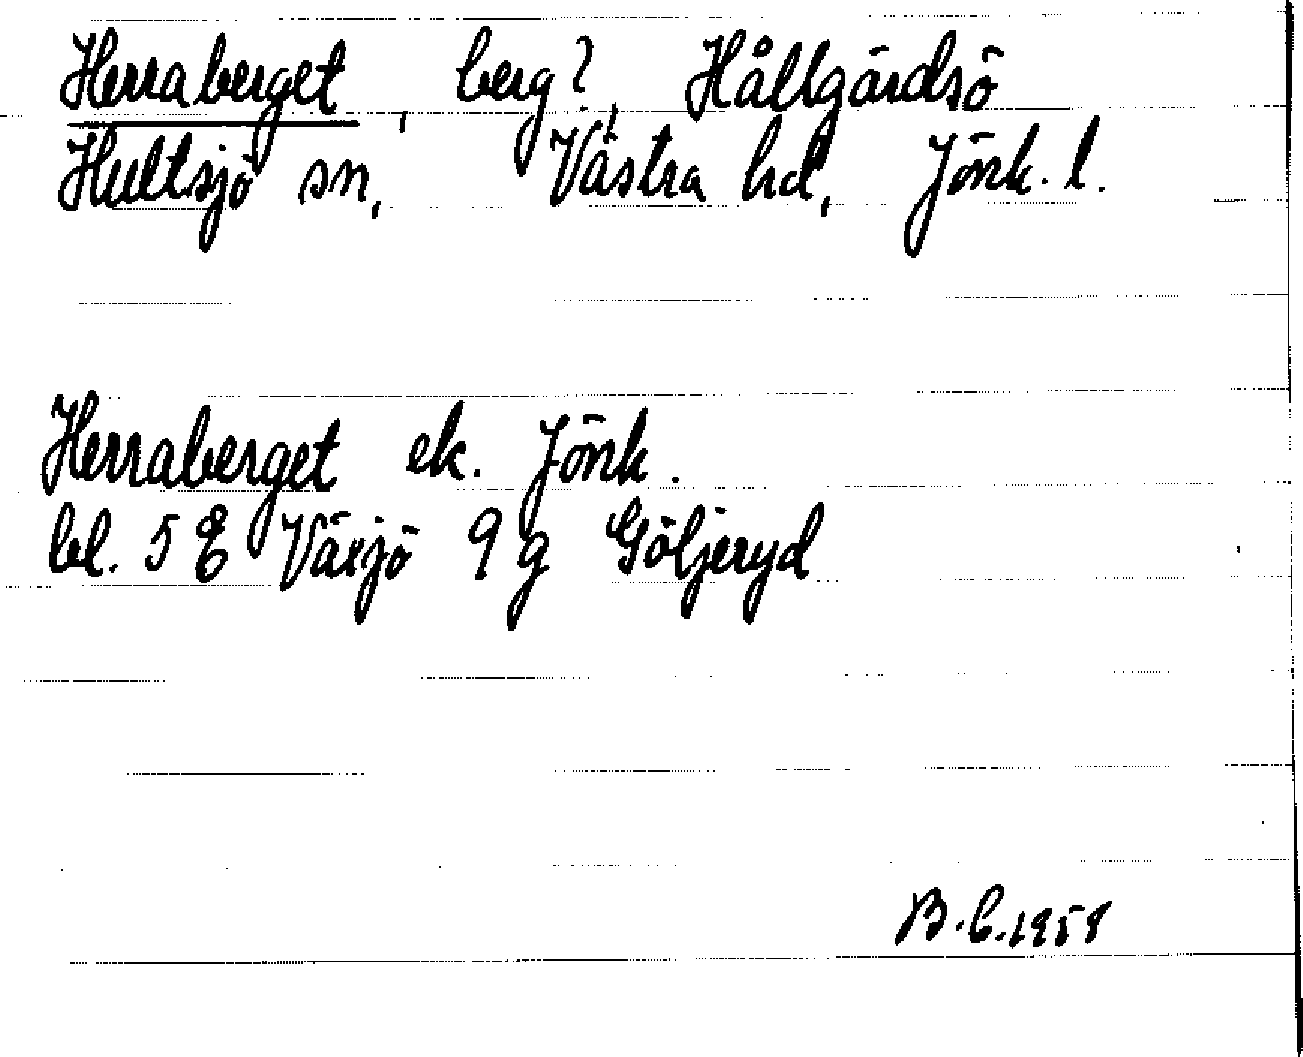 Herraberget, berg?, Hållgårdsö
Hultsjö sn, Västra hd, Jönk. l.
Herraberget ek. Jönk.
bl. 5 E Växjö 9 g Göljeryd
B.C. 1958